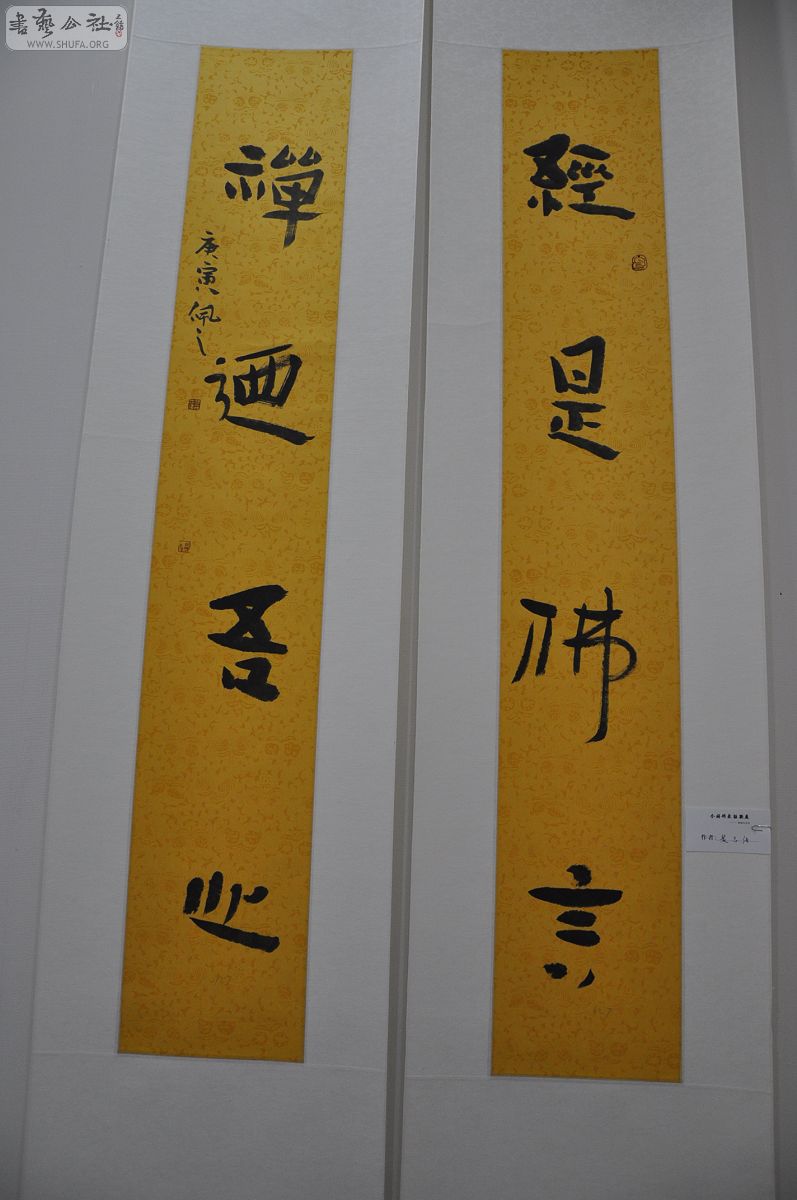 書藝公社
WWW.SHUFA.ORG
經是佛言
禪迺吾心
庚寅佩之
作者: